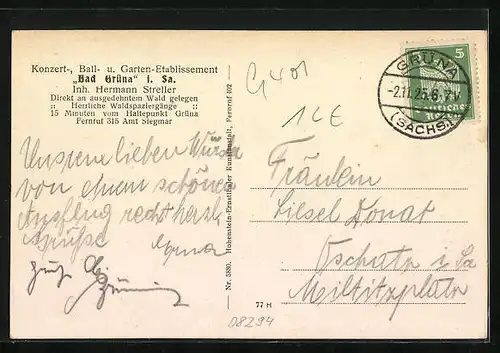 Konzert-, Ball- u. Garten-Etablissement
„Bad Grüna“ i. Sa.
Inh. Hermann Streller
Direkt an ausgedehntem Wald gelegen
:: Herrliche Waldspaziergänge ::
15 Minuten vom Haltepunkt Grüna
Fernruf 315 Amt Siegmar
Unsern lieben
von einem schönen
Ausflug recht herzl.
Grüße
Nr. 5880. Hohenstein-Ernstthaler Kunstanstalt, Fernruf 402
77 H
08294
G 401
1 CE
GRÜNA
-2.11.25.6-7V
(SACHS.)
5
Deutsches
Reich
Fräulein
Liesel Donat
Oschatz i Sa
Miltitzplatz